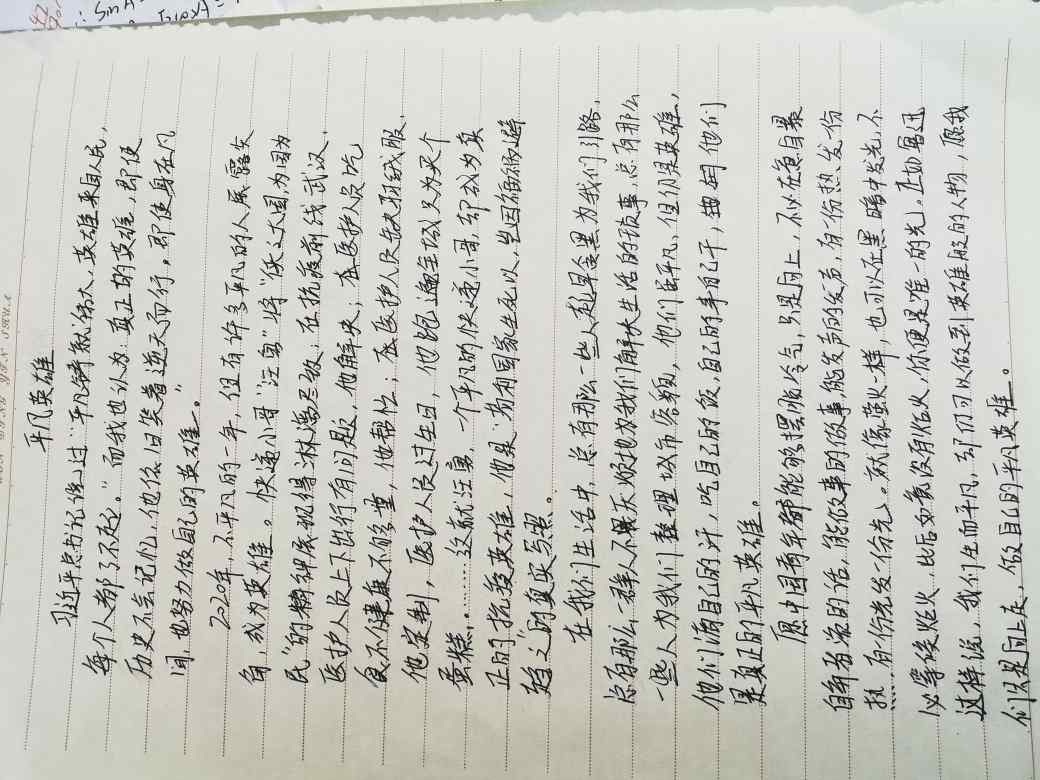 平凡英雄
习近平总书记说过:"平凡铸就伟大,英雄来自人民,
每个人都了不起。"而我也认为:真正的英雄,即使
历史不会记忆,他依旧笑着逆天而行。即使身在凡
间,也努力做自己的英雄。"
2020年,不平凡的一年,但有许多平凡的人展露头
角,成为英雄。快递小哥"汪勇"将"侠之大国,为国为
民"的精神展现得淋漓尽致;在抗疫前线武汉,
医护人员上下出行有问题,他解决;在医护人员吃
食不健康不修堂,他帮忙;在医护人员缺羽绒服,
他定制,医护人员过生日,他跑遍全城只为买个
蛋糕。……这就汪勇,一个平凡的快递小哥,却成为真
正的抗疫英雄,他是"苟利国家生死以,岂因祸福避
趋之"的真实写照。
在我们生活中,总有那么一些人起早贪黑为我们引路,
总有那么一群人不厌天烦地为我们解决生活的琐事,总有那么
一些人为我们整理城市容貌,他们居平凡,但仍是英雄,
他们滴自己的汗,吃自己的饭,自己的事自己干,
是真正的平凡英雄。
愿中国青年都能够摆脱冷气,只是向上,不必在意自暴
自弃者说的话,能做事的做事,能发声的发声,有一份热,发一份
热,有一份光发一份光。就像萤火一样,也可以在黑暗中发光,不
必等侯炬火,此后如竟没有炬火,你便是唯一的光。正如鲁迅
这样说,我们生而平凡,
们只是向上走,做自己的平凡英雄。